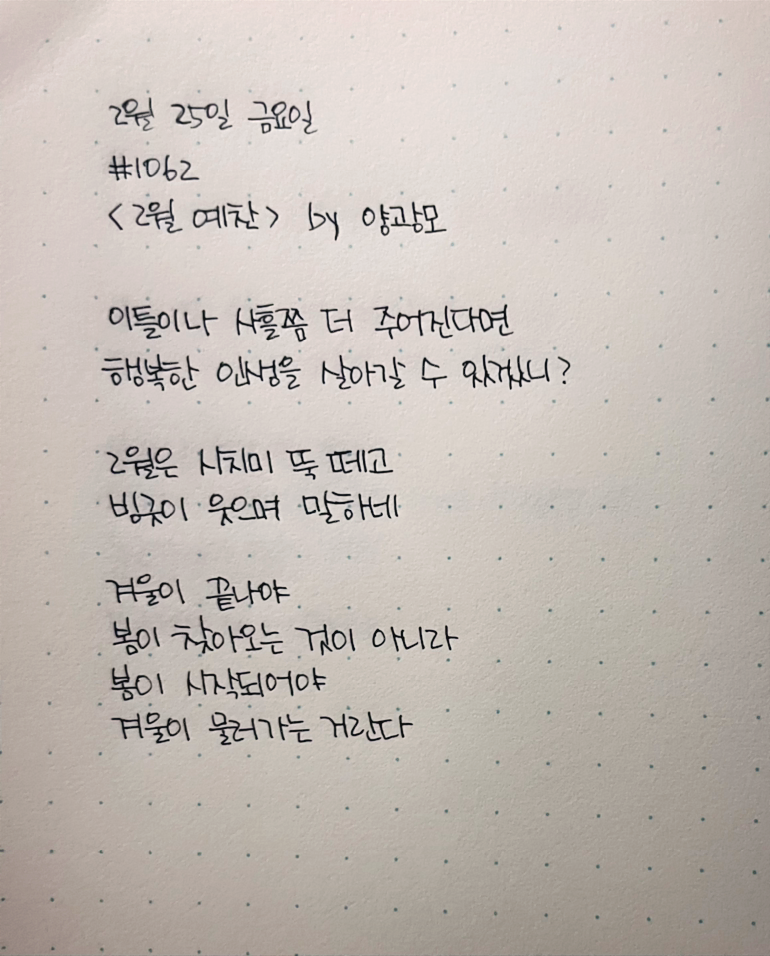 2월 25일 금요일
#1062
<2월 예찬> by 양광모
이틀이나 사흘쯤 더 주어진다면
행복한 인생을 살아갈 수 있겠니?
2월은 시치미 뚝 떼고
빙긋이 웃으며 말하네
겨울이 끝나야
봄이 찾아오는 것이 아니라
봄이 시작되어야
겨울이 물러가는 거란다